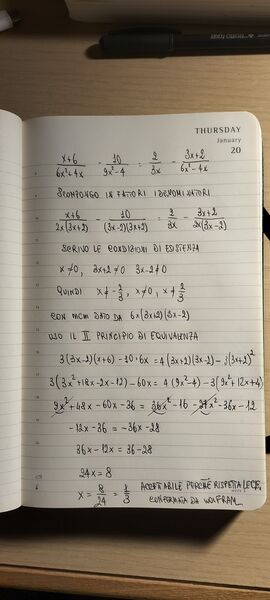 THURSDAY
January
20
x+6/6x²+4x - 10/9x²-4 = 2/3x - 3x+2/6x²-4x
SCOMPONGO IN FATTORI I DENOMINATORI
x+6/2x(3x+2) - 10/(3x-2)(3x+2) = 2/3x - 3x+2/2x(3x-2)
SCRIVO LE CONDIZIONI DI ESISTENZA
x≠0, 3x+2≠0 3x-2≠0
QUINDI x≠-2/3, x≠0, x≠2/3
CON mcm DATO DA 6x(3x+2)(3x-2)
USO IL II PRINCIPIO DI EQUIVALENZA
3(3x-2)(x+6) - 10·6x = 4(3x+2)(3x-2) - 3(3x+2)²
3(3x²+18x-2x-12) - 60x = 4(9x²-4) - 3(9x²+12x+4)
9x² + 48x - 60x - 36 = 36x² - 16 - 27x² - 36x - 12
-12x - 36 = -36x - 28
36x - 12x = 36 - 28
24x = 8
x = 8/24 = 1/3 ACCETTABILE PERCHÉ RISPETTA LE C.E.
CONFERMATA DA WOLFRAM